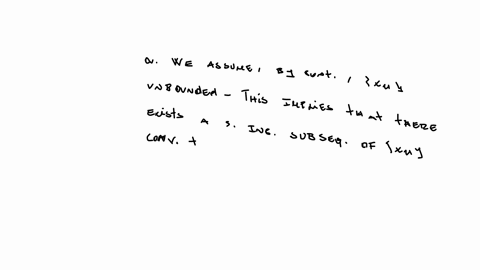 a. WE ASSUME, BY CONT., {xn}
UNBOUNDED - THIS IMPLIES THAT THERE
EXISTS A S. INC. SUBSEQ. OF {xn}
CONV. t